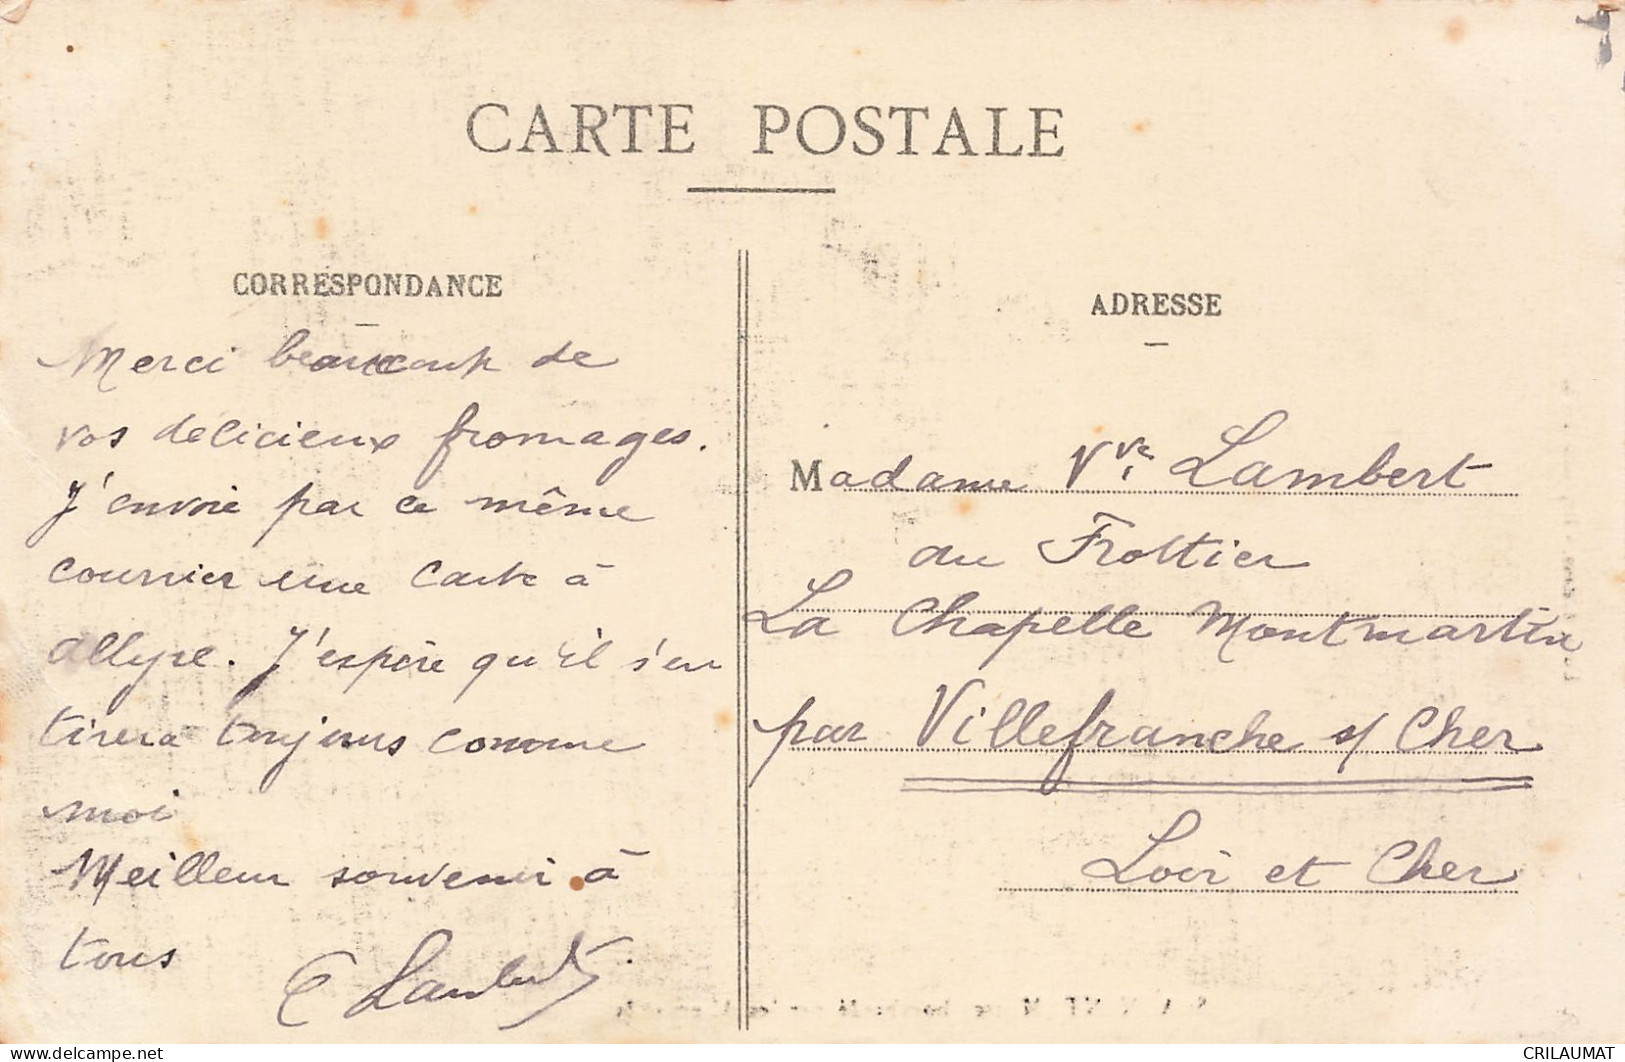 CARTE POSTALE
CORRESPONDANCE
Merci beaucoup de
vos delicieux fromages.
J'envoie par ce même
courrier une carte à
allyre. J'espère qu'il s'en
tirera toujours comme
moi
Meilleur souvenir à
tous
E Lambert.
ADRESSE
Madame Vve Lambert
au Frottier
La Chapelle Montmartin
par Villefranche s/ Cher
Loir et Cher
delcampe.net
CRILAUMAT